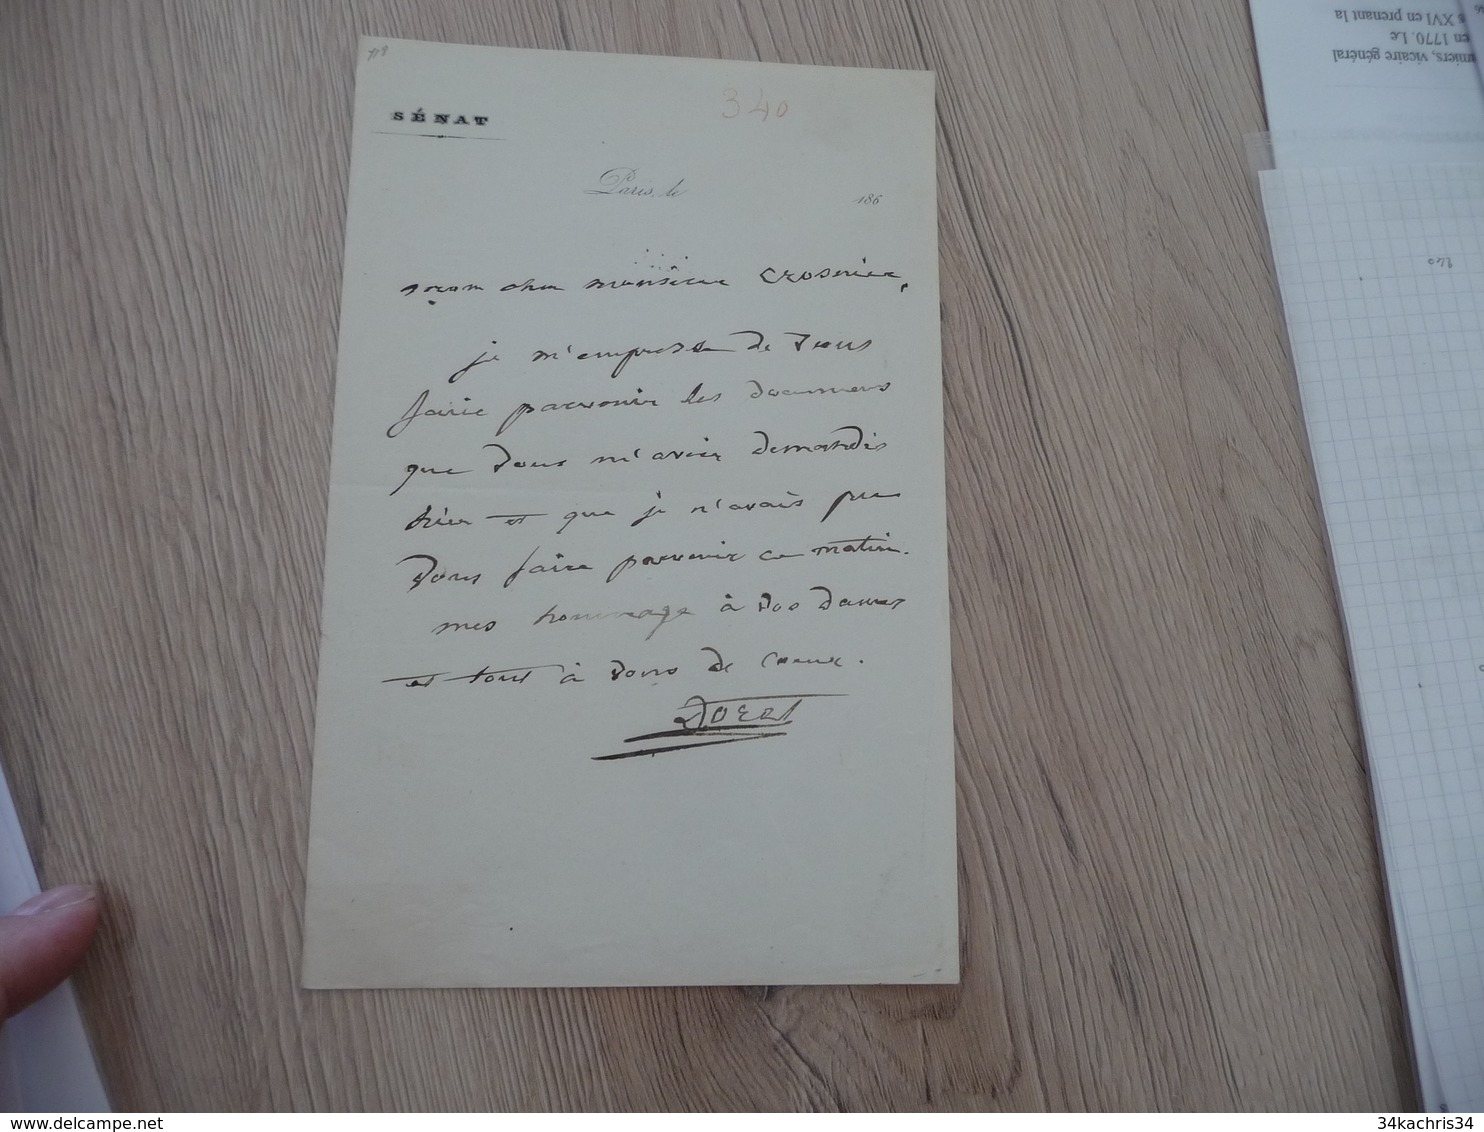 SÉNAT
340
Paris, le 186
mon cher monsieur Crosnier,
je m'empresse de vous
faire parvenir les documens
que vous m'aviez demandés
hier et que je n'avais pu
vous faire parvenir ce matin.
mes hommage à vos dames
et tout à vous de coeur.
en prenant la
s XVI
en 1770. Le
miers, vicaire général
340
34kachris34